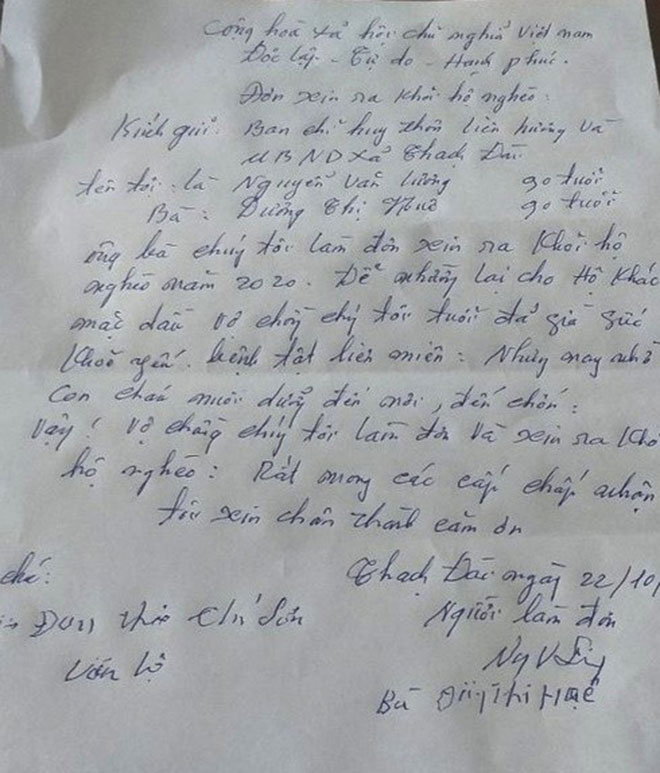 Cộng hoà xả hội chủ nghĩa Việt nam
Độc lập - Tự do - Hạnh phúc.
Đơn xin ra khỏi hộ nghèo:
Kính gửi: Ban chỉ huy thôn liên hương và
UBND xả Thạch Đài
tên tôi: là Nguyễn Văn Lương 90 tuổi
Bà: Dương Thị Huê 90 tuổi
ông bà chúng tôi làm đơn xin ra khỏi hộ
nghèo năm 2020. Để nhường lại cho Hộ khác
mặc dầu vợ chồng chúng tôi tuổi đả già sức
khoẻ yếu. bệnh tật liên miên: Nhưng may nhờ
con cháu nuôi dưỡng đến nơi, đến chốn:
Vậy! vợ chồng chúng tôi làm đơn và xin ra khỏ
hộ nghèo: Rất mong các cấp chấp nhận
tôi xin chân thành cảm ơn
Thạch Đài ngày 22/10/
Người làm đơn
Bà Thị Huê